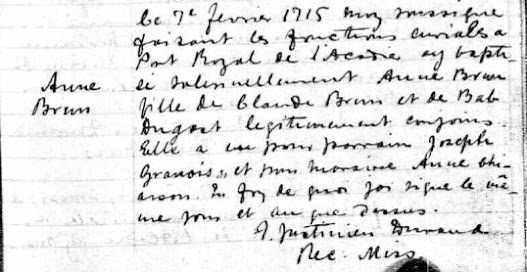 le 7e fevrier 1715 moy soussigné
faisant les fonctions curiales a
Port Royal de l'Acadie ay bapti-
sé solennellement Anne Brun
Anne
Brun
fille de Claude Brun et de Bab
Dugast legitimement conjoins.
Elle a eu pour parrain Joseph
et pour marraine Anne
En foy de quoi j'ai signé le mê-
me jour et an que dessus.
f. Justinien Durand
Rec. Miss